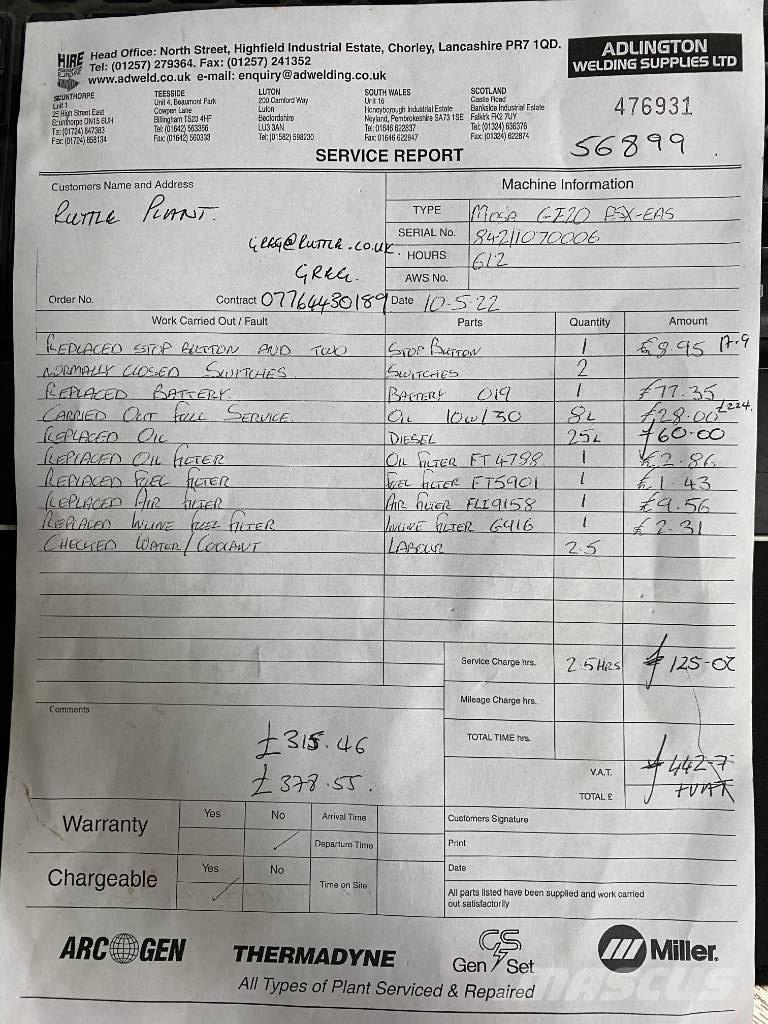 HIRE Head Office: North Street, Highfield Industrial Estate, Chorley, Lancashire PR7 1QD.
Tel: (01257) 279364. Fax: (01257) 241352
www.adweld.co.uk e-mail: enquiry@adwelding.co.uk
ADLINGTON
WELDING SUPPLIES LTD
SCUNTHORPE
Unit 1
25 High Street East
Scunthorpe DN15 6UH
Tel: (01724) 847383
Fax: (01724) 856134
TEESIDE
Unit 4, Beaumont Park
Cowpen Lane
Billingham TS23 4HF
Tel: (01642) 563356
Fax: (01642) 560333
LUTON
200 Camford Way
Luton
Bedfordshire
LU3 3AN
Tel: (01582) 598230
SOUTH WALES
Unit 16
Honeyborough Industrial Estate
Neyland, Pembrokeshire SA73 1SE
Tel: 01646 622837
Fax: 01646 622847
SCOTLAND
Castle Road
Bankside Industrial Estate
Falkirk FK2 7UY
Tel: (01324) 636376
Fax: (01324) 622874
476931
56899
SERVICE REPORT
Customers Name and Address
RUTTLE PLANT.
GREG@RUTTLE.CO.UK
GREG.
Order No.
Contract 07764430189
Machine Information
TYPE MOSA GE20 PSX-EAS
SERIAL No. 84211070006
HOURS 612
AWS No.
Date 10-5-22
Work Carried Out / Fault Parts Quantity Amount
REPLACED STOP BUTTON AND TWO STOP BUTTON 1 £8.95 17.9
NORMALLY CLOSED SWITCHES. SWITCHES 2
REPLACED BATTERY. BATTERY 019 1 £77.35
CARRIED OUT FULL SERVICE. OIL 10W/30 8L £28.00 £224.
REPLACED OIL DIESEL 25L £60.00
REPLACED OIL FILTER OIL FILTER FT4798 1 £2.86
REPLACED FUEL FILTER FUEL FILTER FT5901 1 £1.43
REPLACED AIR FILTER AIR FILTER FLI9158 1 £9.56
REPLACED INLINE FUEL FILTER INLINE FILTER G916 1 £2.31
CHECKED WATER/COOLANT LABOUR 2.5
Service Charge hrs. 2.5HRS £125-00
Mileage Charge hrs.
TOTAL TIME hrs.
Comments
£315.46
£378.55.
V.A.T. £442-7
TOTAL £ +VAT
Warranty Yes No Arrival Time
Departure Time
Chargeable Yes No Time on Site
Customers Signature
Print
Date
All parts listed have been supplied and work carried
out satisfactorily
ARC GEN
THERMADYNE
GS
Gen Set
Miller.
All Types of Plant Serviced & Repaired
MASCUS